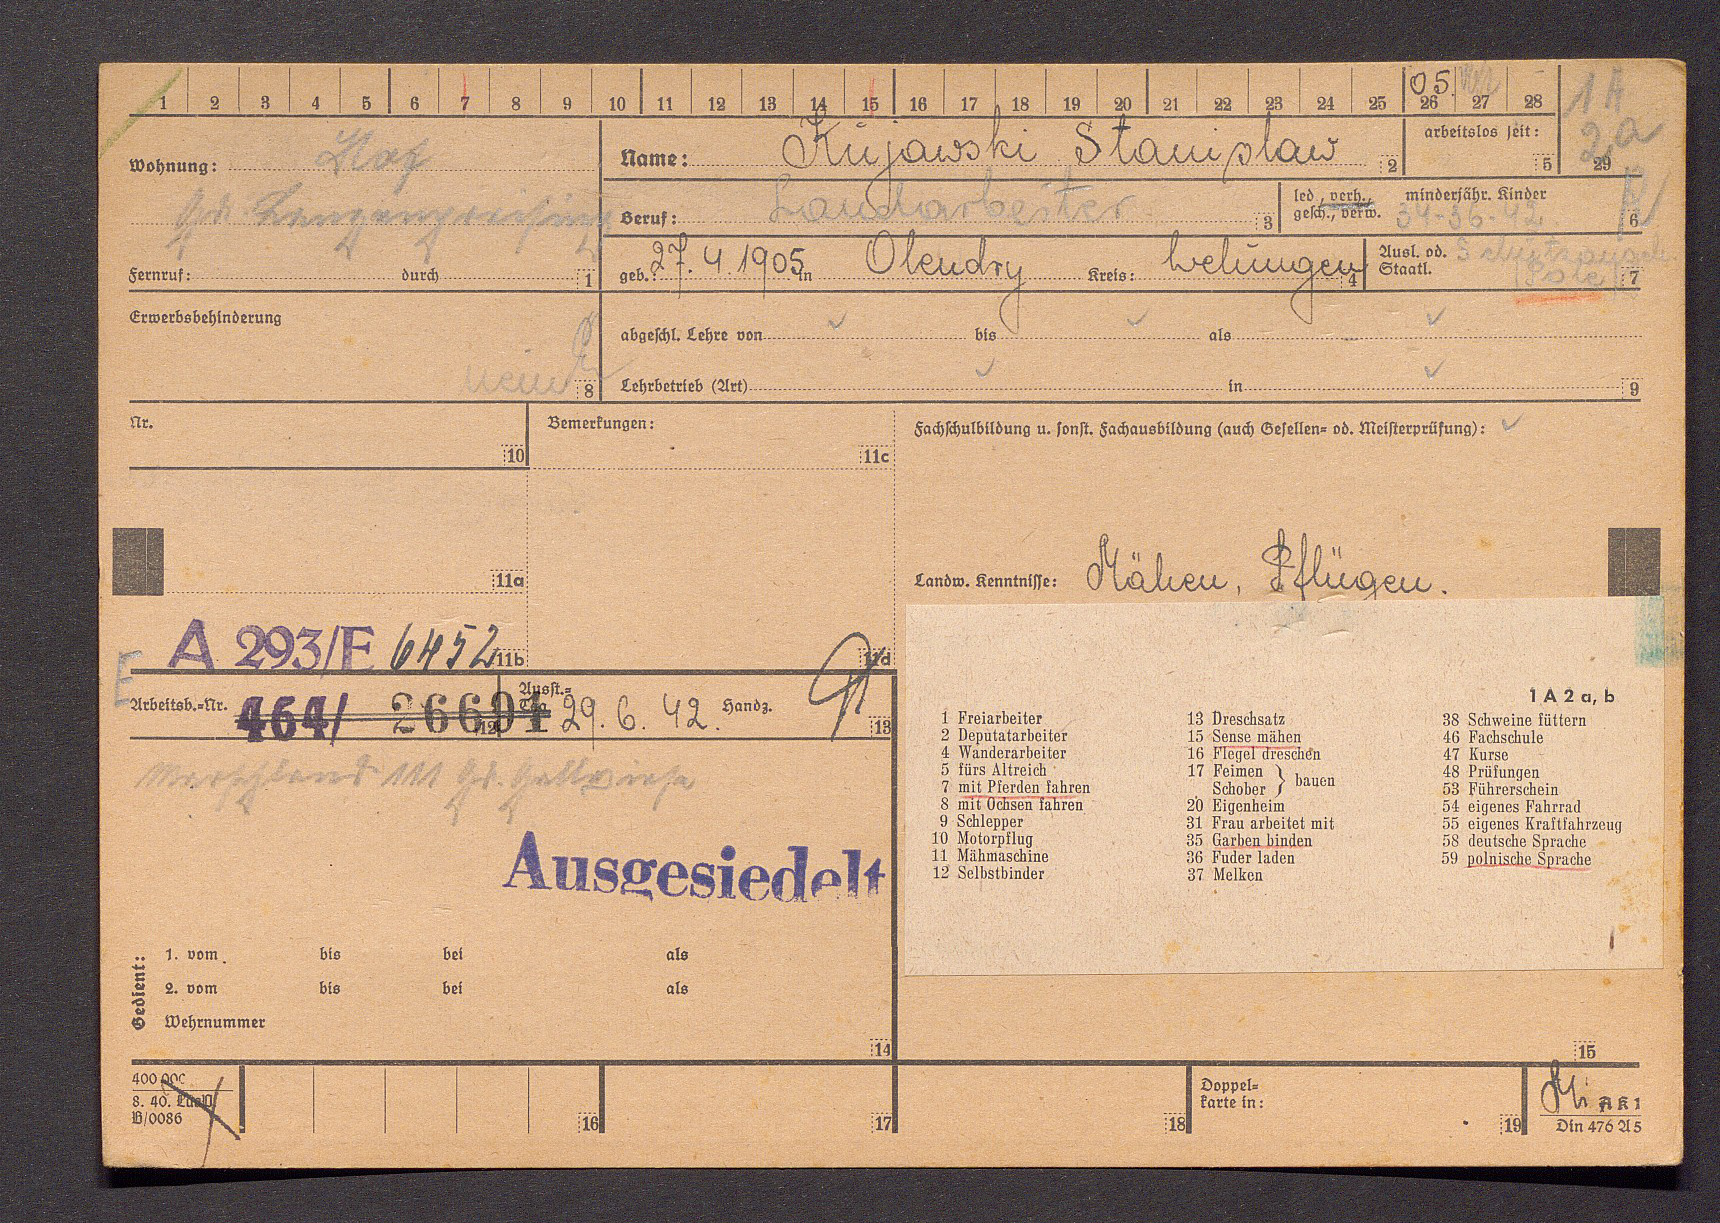 1 2 3 4 5 6 7 8 9 10 11 12 13 14 15 16 17 18 19 20 21 22 23 24 25 26 27 28
05.
1A
2a
29
Wohnung:
Name: Kujawski Stanisław 2
arbeitslos seit: 5
Beruf: Landarbeiter 3
led., verh., gesch., verw.
minderjähr. Kinder
34-36-42. 6
Fernruf: durch 1
geb. 27.4.1905 in Olendry Kreis: Welungen 4
Ausl. od. Staatl. Schutzangeh. Pole 7
Erwerbsbehinderung
nein 8
abgeschl. Lehre von bis als
Lehrbetrieb (Art) in 9
Nr. 10
Bemerkungen: 11c
Fachschulbildung u. sonst. Fachausbildung (auch Gesellen= od. Meisterprüfung):
11a
Landw. Kenntnisse: Mähen, Pflügen.
A 293/E 6452 11b
11d
E
Arbeitsb.=Nr. 464/ 26691 12
Ausst.= Tag 29.6.42. Handz. 13
Ausgesiedelt
1 A 2 a, b
1 Freiarbeiter
2 Deputatarbeiter
4 Wanderarbeiter
5 fürs Altreich
7 mit Pferden fahren
8 mit Ochsen fahren
9 Schlepper
10 Motorpflug
11 Mähmaschine
12 Selbstbinder
13 Dreschsatz
15 Sense mähen
16 Flegel dreschen
17 Feimen } bauen
Schober
20 Eigenheim
31 Frau arbeitet mit
35 Garben binden
36 Fuder laden
37 Melken
38 Schweine füttern
46 Fachschule
47 Kurse
48 Prüfungen
53 Führerschein
54 eigenes Fahrrad
55 eigenes Kraftfahrzeug
58 deutsche Sprache
59 polnische Sprache
Gedient:
1. vom bis bei als
2. vom bis bei als
Wehrnummer
14
15
400 000
8. 40.
B/0086
16
17
18
Doppel=
karte in:
19
AK1
Din 476 A5